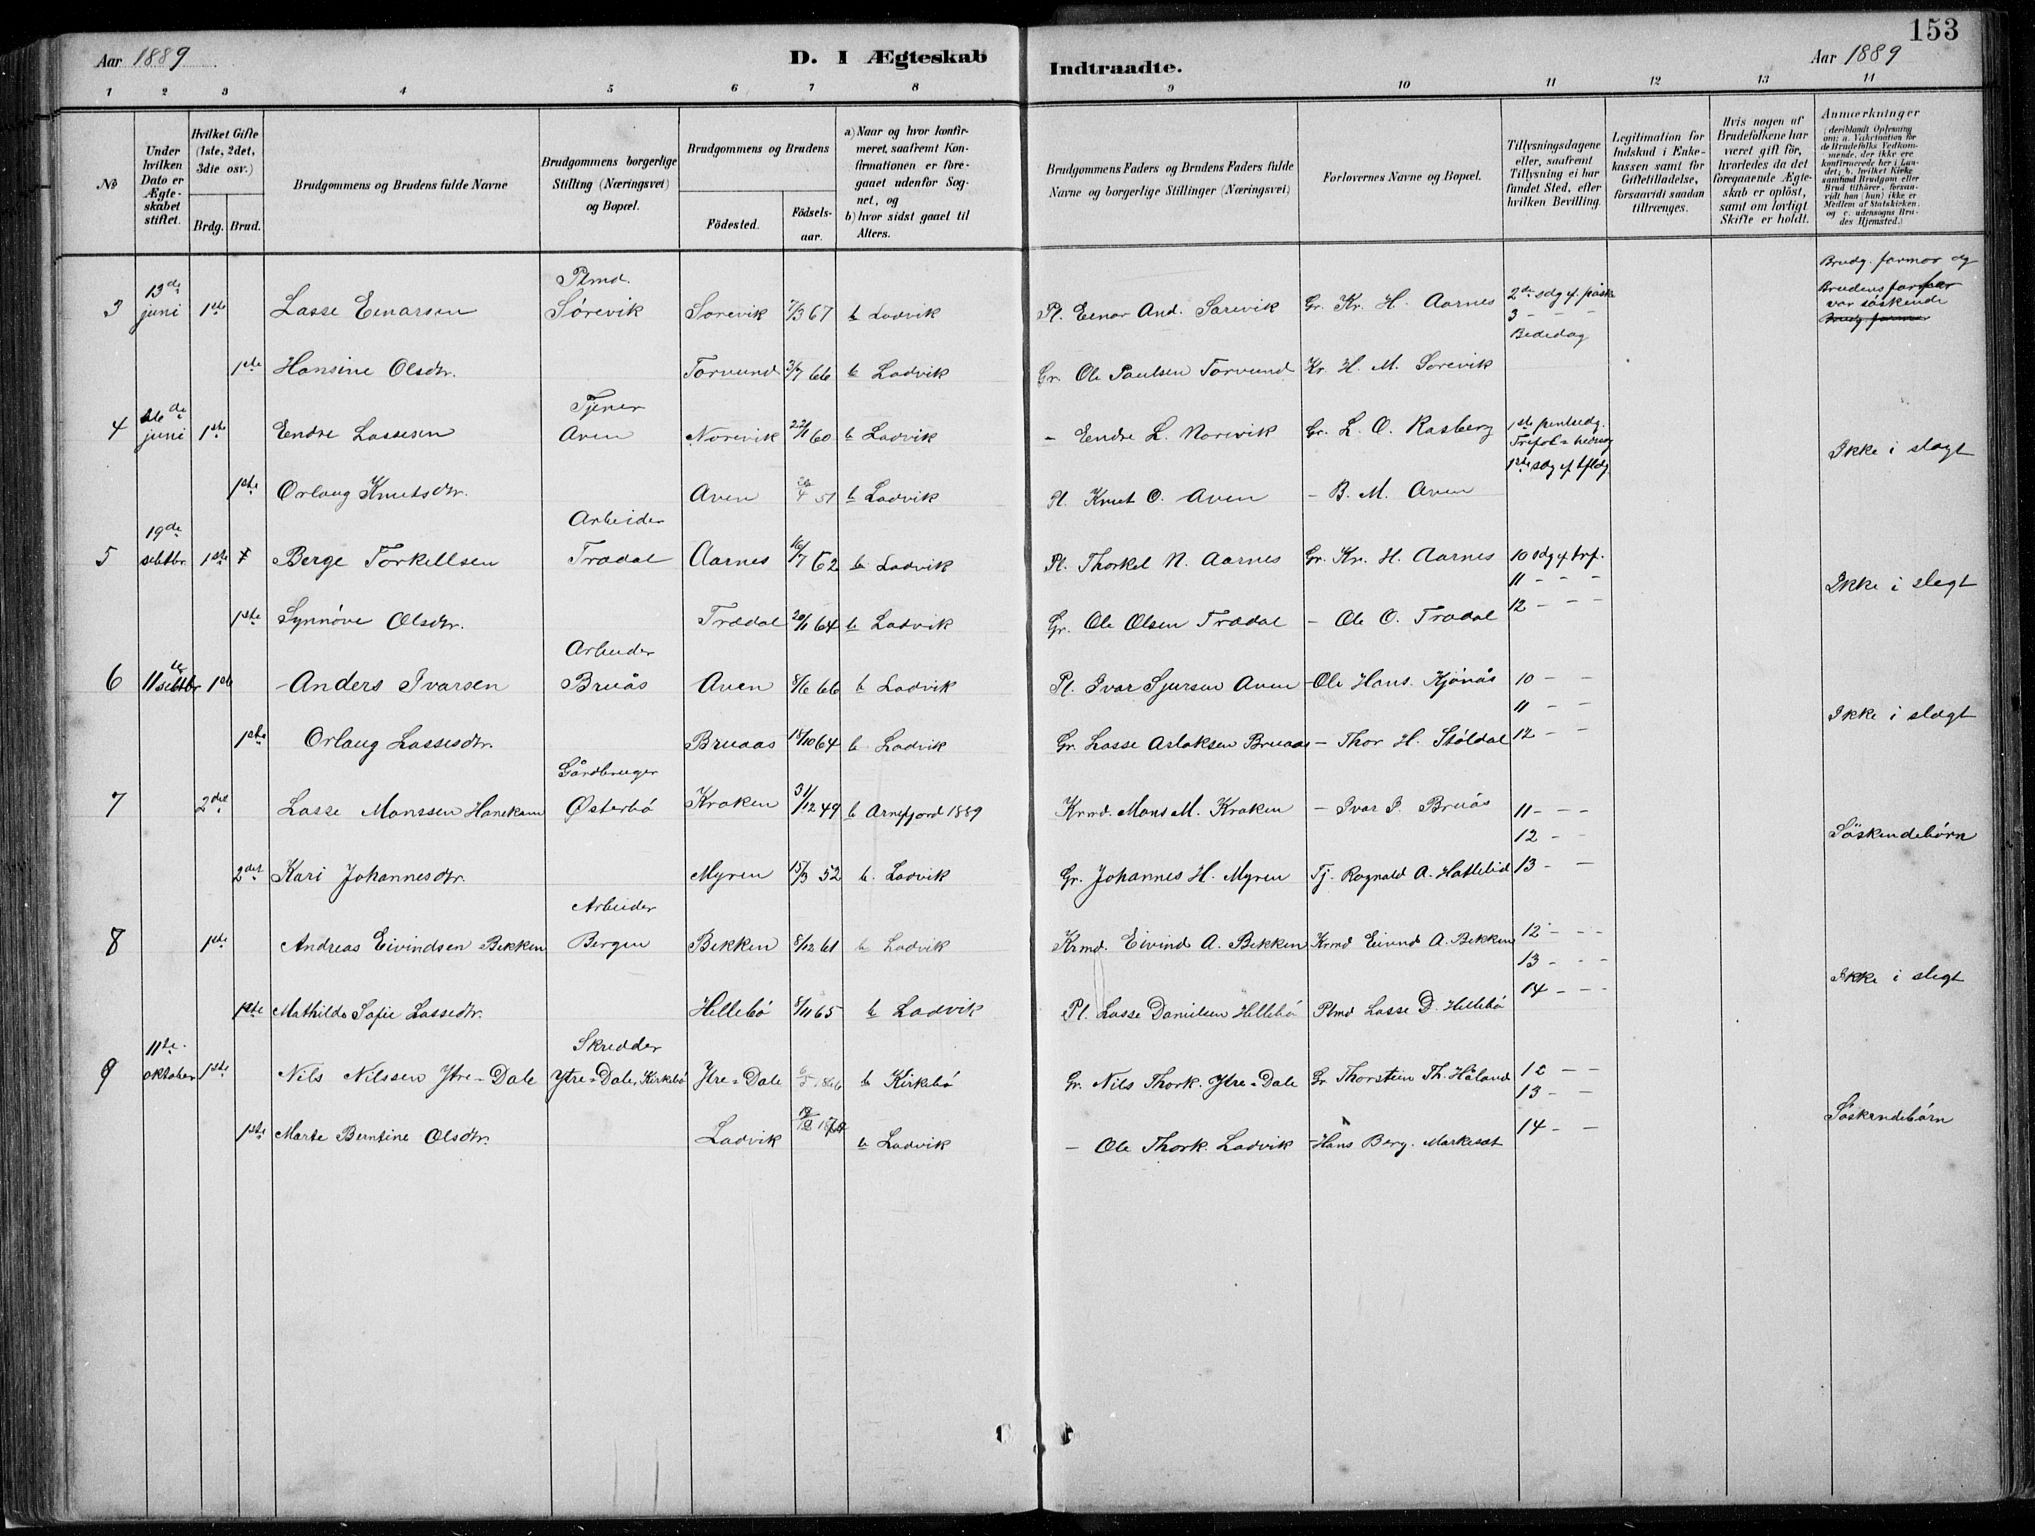 153
Aar 1889 D. I Ægteskab Indtraadte. Aar 1889
1 2 3 4 5 6 7 8 9 10 11 12 13 14
No
Under hvilken Dato er Ægteskabet stiftet.
Hvilket Gifte (1ste, 2det, 3die osv.)
Brdg. Brud.
Brudgommens og Brudens fulde Navne
Brudgommens borgerlige Stilling (Næringsvei) og Bopæl.
Brudgommens og Brudens
Födested.
Födsels-aar.
a) Naar og hvor konfirmeret, saafremt Konfirmationen er foregaaet udenfor Sognet, og
b) hvor sidst gaaet til Alters.
Brudgommens Faders og Brudens Faders fulde Navne og borgerlige Stillinger (Næringsvei)
Forlovernes Navne og Bopæl.
Tillysningsdagene eller, saafremt Tillysning ei har fundet Sted, efter hvilken Bevilling.
Legitimation for Indskud i Enkekassen samt for Giftetilladelse, forsaavidt saadan tiltrænges.
Hvis nogen af Brudefolkene har været gift för, hvorledes da det foregaaende Ægteskab er oplöst, samt om lovligt Skifte er holdt.
Anmærkninger
(deriblandt Oplysning om: a. Vakcination for de Brudefolks Vedkommende, der ikke ere konfirmerede her i Landet, b. hvilket Kirkesamfund Brudgom eller Brud tilhörer, forsavidt han (hun) ikke er Medlem af Statskirken, og c. udensogns Brudes Hjemsted.)
3 13de juni 1ste Lasse Einarsen Plmd. Sørevik Sørevik 7/3 67 b Ladvik Pl. Einar And. Sørevik Gr. Kr. H. Aarnes 2den sdg ef. påske
3 - - -
Bededag
Brudg. farmor og
Brudens farfar
var søskende
Brudg. farmor
1ste Hansine Olsdtr. Torvund 3/7 66 b Ladvik Gr. Ole Paulsen Torvund Kr. H. M. Sørevik
4 26de juni 1ste Endre Lassesen Tjener Aven Norevik 22/11 60 b Ladvik - Endre L. Norevik Gr. L. O. Rasberg 1ste pintsedg.
1ste sdg ef tfldg
Ikke i slægt
1ste Orlaug Knutsdtr. Aven 26/4 51 b Ladvik Pl. Knut O. Aven - B. M. Aven
5 19de sebtbr. 1ste Berge Torkellsen Arbeider Trædal Aarnes 16/7 62 b Ladvik Pl. Thorkel N. Aarnes Gr. Kr. H. Aarnes 10 sdg ef trf.
11 - - -
12 - - -
Ikke i slegt
1ste Synnøve Olsdtr. Trædal 20/11 64 b Ladvik Gr. Ole Olsen Trædal - Ole O. Trædal
6 11te sebtbr 1ste Anders Ivarsen Arbeider Bruås Aven 8/6 66 b Ladvik Pl. Ivar Sjursen Aven - Ole Hans. Kjønås 10 - -
11 - -
12 - -
Ikke i slægt
1ste Orlaug Lassesdtr. Bruaas 18/10 64 b. Ladvik Gr. Lasse Aslaksen Bruaas - Thor H. Støldal
7 2det Lasse Monssen Hanekam Gårdbruger Østerbø Kraken 31/12 49 b Arnefjord 1889 Krmd. Mons M. Kraken - Ivar I. Bruås 11 - - -
12 - -
13 - -
Søskendebørn
2det Kari Johannesdtr. Myren 15/3 52 b. Ladvik Gr. Johannes H. Myren Tj. Rognald A. Hatlelid
8 1ste Andreas Eivindsen Bekken Arbeider Bergen Bekken 8/12 61 b Ladvik Krmd. Eivind A. Bekken Krmd Eivind A. Bekken 12 - - -
13 - - -
14 - - -
Ikke i slegt
1ste Mathilde Sofie Lassedtr. Hillebø 8/11 65 b Ladvik Pl. Lasse Danielsen Hillebø Plmd Lasse D. Hillebø
9 11te oktober 1ste Nils Nilssen Ytre-Dale Skredder Ytre-Dale, Kirkebø Ytre-Dale 6/5 1866 b Kirkebø Gr. Nils Thork. Ytre-Dale Gr. Thorstein Th. Håland 12 - -
13 - -
14 - -
Søskendebørn
1ste Marte Berntine Olsdtr. Ladvik b Ladvik - Ole Thork. Ladvik - Hans Berg. Markeset